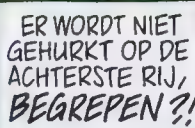 ER WORDT NIET
GEHURKT OP DE
ACHTERSTE RIJ,
BEGREPEN?!